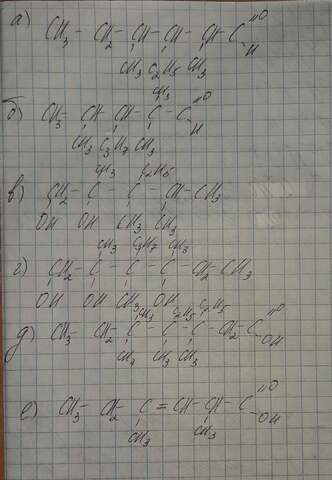 а) CH3 - CH2 - CH - CH - CH - C =O
H
CH3 C2H5 CH3
CH3
б) CH3 - CH - CH - C - C =O
H
CH3 C3H7 CH3
CH3 C2H5
в) CH2 - C - C - CH - CH3
OH OH CH3 CH3
CH3 C3H7 CH3
г) CH2 - C - C - C - CH2 - CH3
OH OH CH3 OH
CH3 C2H5 C2H5
д) CH3 - CH2 - C - C - C - CH2 - C =O
OH
CH3 CH3 CH3
е) CH3 - CH2 - C = CH - CH - C =O
OH
CH3 CH3